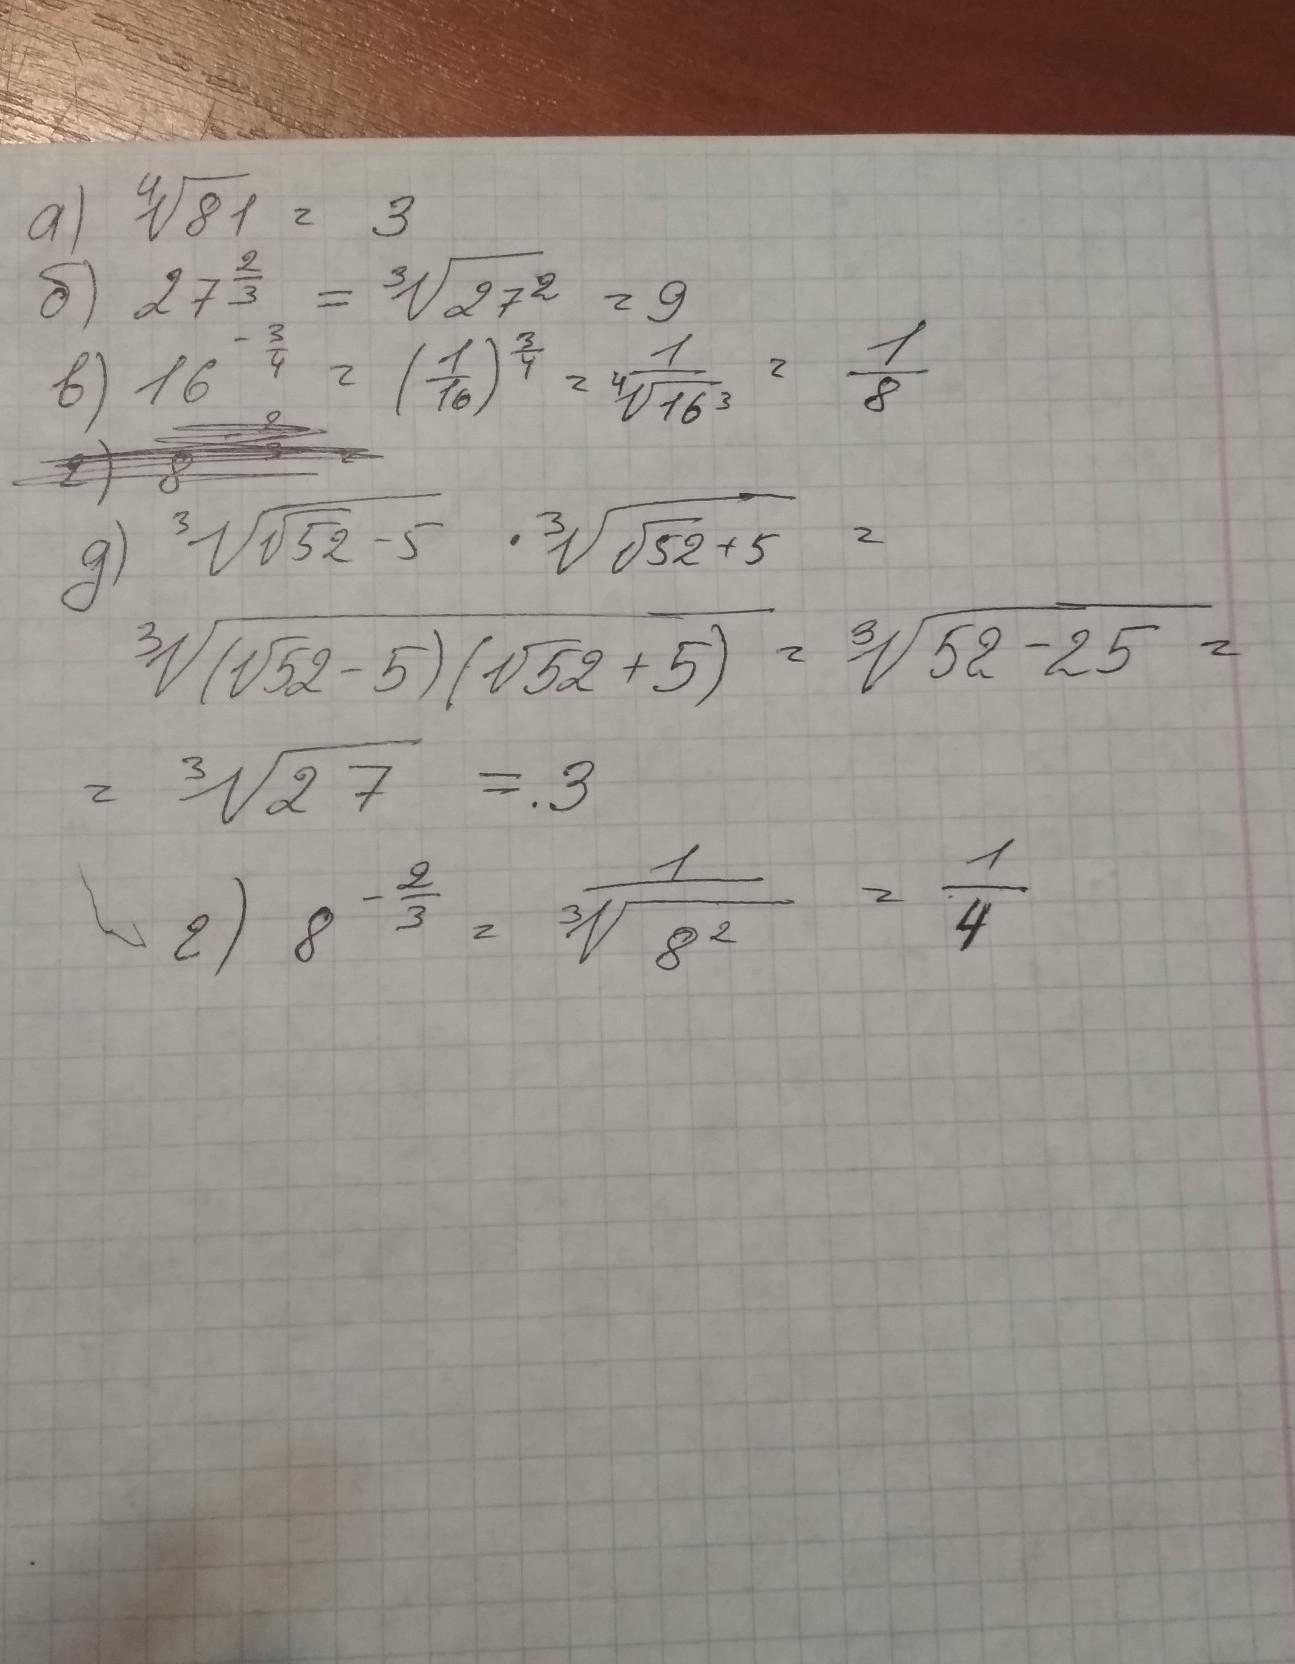 а) ⁴√81 = 3
б) 27^(2/3) = ³√27² = 9
в) 16^(-3/4) = (1/16)^(3/4) = 1/⁴√16³ = 1/8
г) 8
д) ³√(√52 - 5) · ³√(√52 + 5) =
³√((√52 - 5)(√52 + 5)) = ³√(52 - 25) =
= ³√27 = 3
г) 8^(-2/3) = 1/³√8² = 1/4